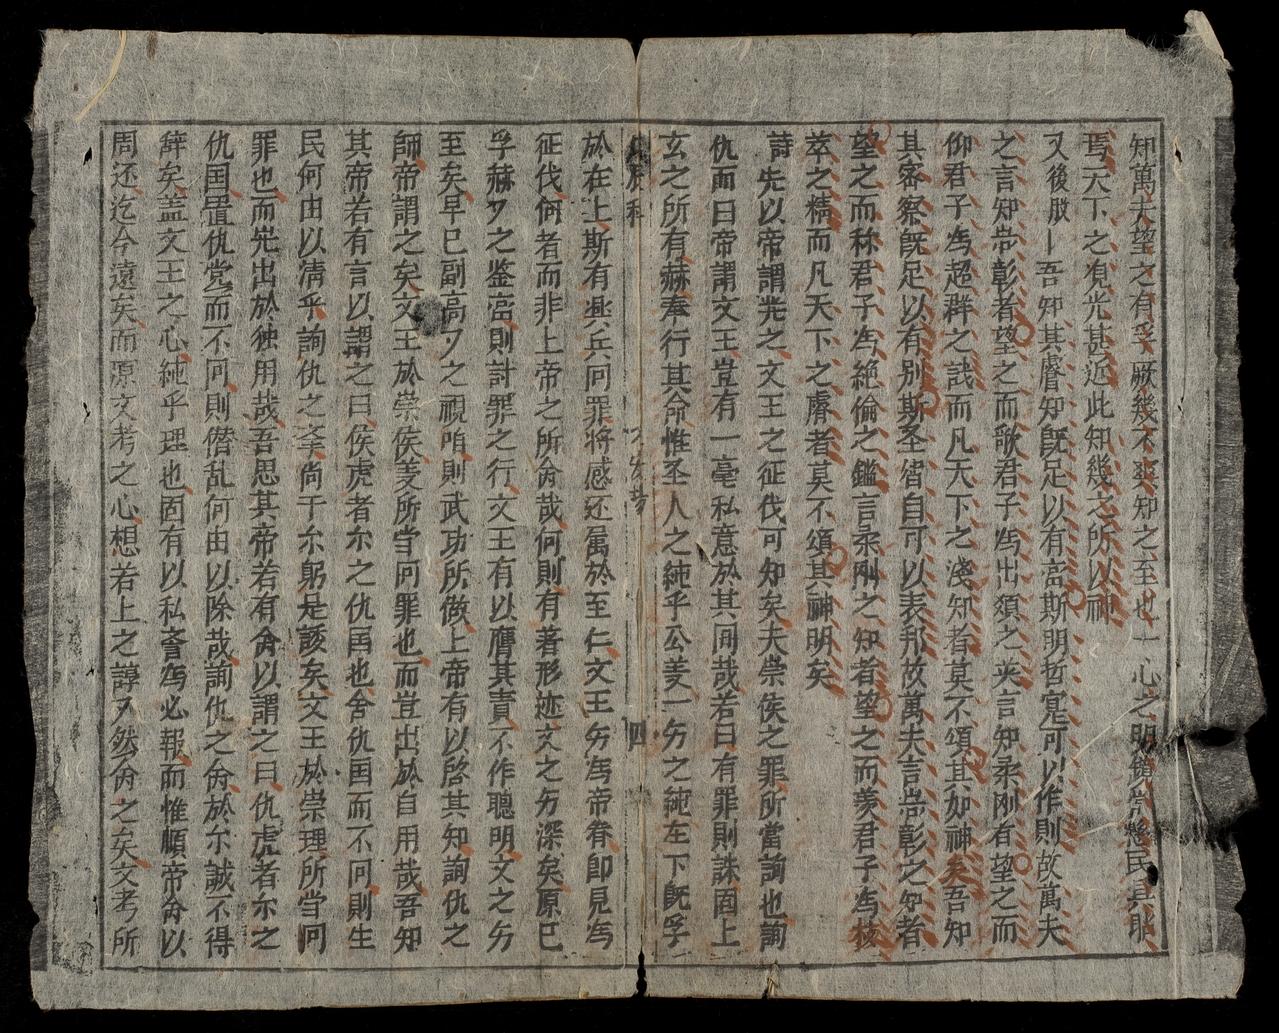 知萬夫望之有孚厥幾不爽知之至也一心之明鏡常懸民具耶
焉天下之覌光甚近此知幾之所以神
又後股 吾知其睿知旣足以有高斯明哲寔可以作則故萬夫
之言知甞彰者望之而歌君子為出類之英言知柔刚者望之而
仰君子為超群之識而凡天下之淺知者莫不頌其如神矣吾知
其宻察旣足以有别斯圣智自可以表邦故萬夫言甞彰之知者
望之而称君子為絶倫之鑑言柔刚之知者望之而羡君子為核
萃之精而凡天下之膚者莫不頌其神明矣
詩 先以帝謂光之文王之征伐可知矣夫崇侯之罪所當詢也詢
仇而曰帝謂文王豈有一毫私意於其间哉若曰有罪則誅固上
玄之所有赫奉行其命惟圣人之純乎公姜一㐌之純在下旣孚
四
於在上斯有興兵问罪将感还属於至仁文王㐌為帝眷卽見為
征伐何者而非上帝之所命哉何則有著形迹文之㐌深矣原已
孚赫又之鉴高則討罪之行文王有以膺其責不作聰明文之㐌
至矣早已副高又之視咱則武功所做上帝有以啓其知詢仇之
師帝謂之矣文王於崇侯姜所当问罪也而豈出於自用哉吾知
其帝若有言以謂之曰侯虎者尓之仇国也舍仇国而不问則生
民何由以清乎詢仇之挙尚于尓躬是該矣文王於崇理所当问
罪也而兂出於独用哉吾思其帝若有命以謂之曰仇虎者尓之
仇国置仇党而不问則僭乱何由以除哉詢仇之命於尓誠不得
辞矣盖文王之心純乎理也固有以私斎為必報而惟順帝命以
周还迄今遠矣而源文考之心想若上之諄又然命之矣文考所